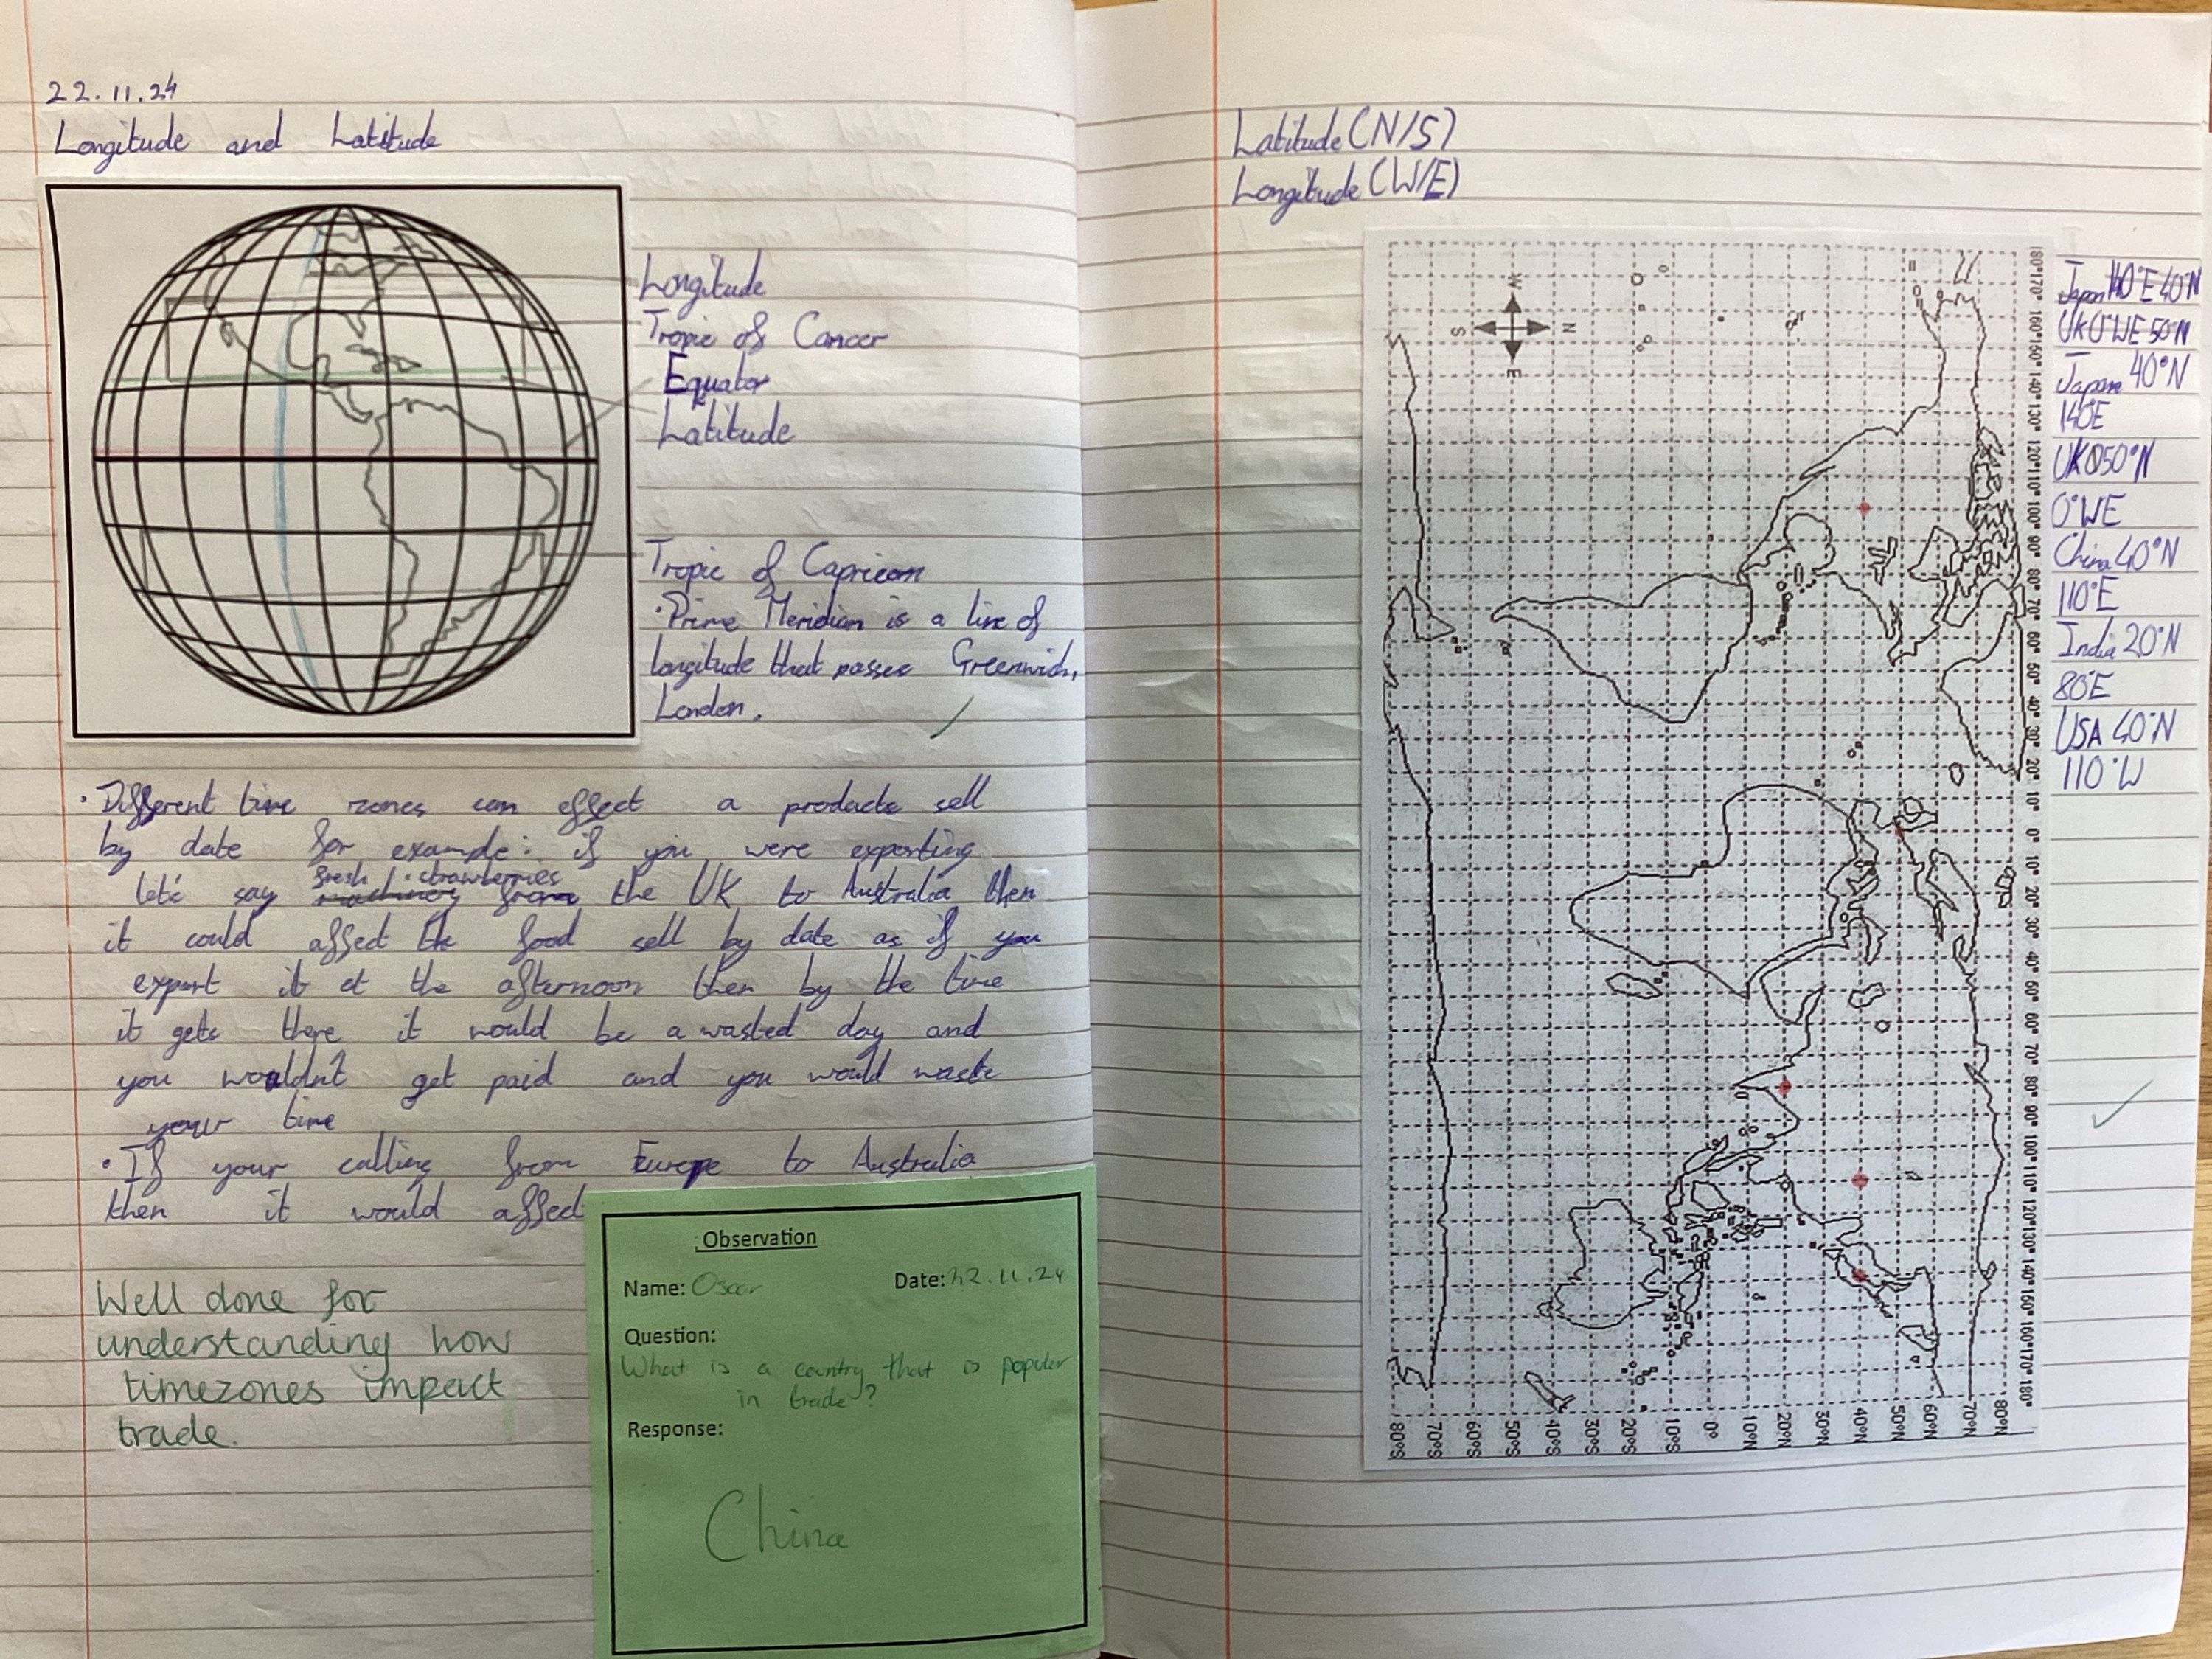 22.11.24
Longitude and Latitude
Longitude
Tropic of Cancer
Equator
Latitude
Tropic of Capricorn
·Prime Meridian is a line of
longitude that passes Greenwich,
London.
·Different time zones can effect a products sell
by date for example: if you were exporting
let's say fresh strawberries the UK to Australia then
it could affect the food sell by date as if you
export it at the afternoon then by the time
it gets there it would be a wasted day and
you wouldn't get paid and you would waste
your time
·If your calling from Europe to Australia
then it would affect
Well done for
understanding how
timezones impact
trade.
Observation
Name: Oscar Date: 22.11.24
Question:
What is a country that is popular
in trade?
Response:
China
Latitude (N/S)
Longitude (W/E)
N
E
S
W
180° 170° 160° 150° 140° 130° 120° 110° 100° 90° 80° 70° 60° 50° 40° 30° 20° 10° 0° 10° 20° 30° 40° 50° 60° 70° 80° 90° 100° 110° 120° 130° 140° 150° 160° 170° 180°
80°N
70°N
60°N
50°N
40°N
30°N
20°N
10°N
0°
10°S
20°S
30°S
40°S
50°S
60°S
70°S
80°S
Japan 140°E 40°N
UK 0°WE 50°N
Japan 40°N
140E
UK 50°N
0°WE
China 40°N
110°E
India 20°N
80°E
USA 40°N
110°W